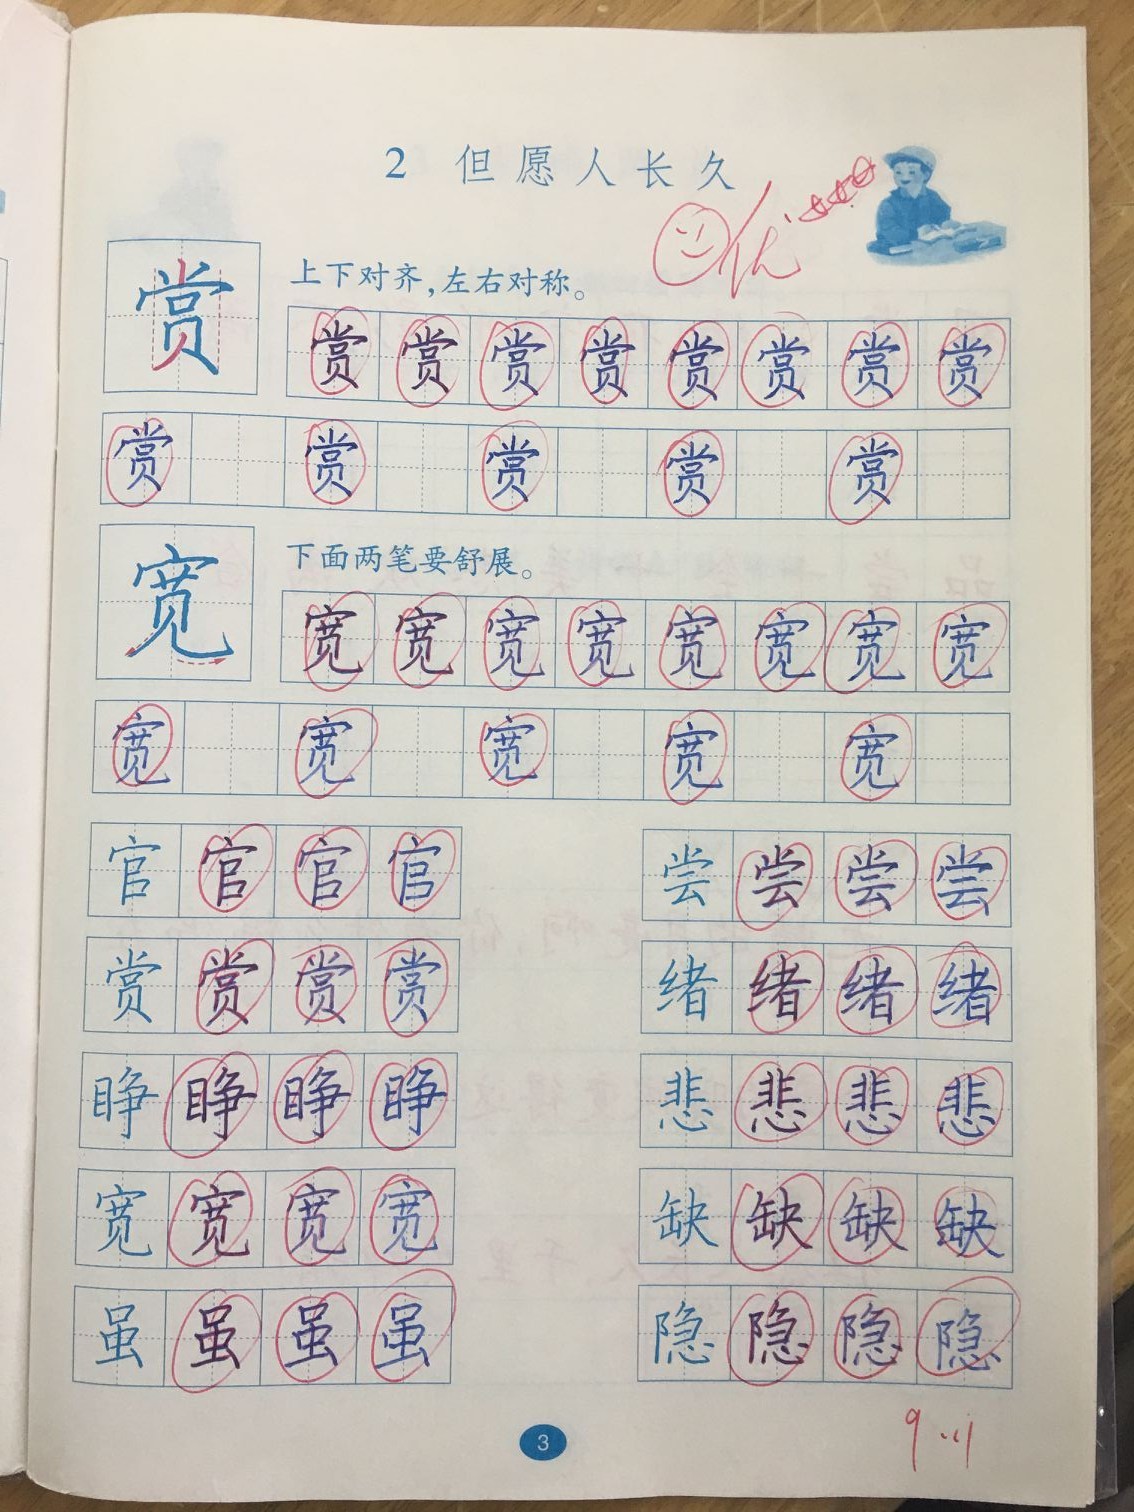 2 但愿人长久
优
赏 上下对齐，左右对称。
赏 赏 赏 赏 赏 赏 赏 赏
赏 赏 赏 赏 赏
宽 下面两笔要舒展。
宽 宽 宽 宽 宽 宽 宽 宽
宽 宽 宽 宽 宽
官 官 官 官 尝 尝 尝 尝
赏 赏 赏 赏 绪 绪 绪 绪
睁 睁 睁 睁 悲 悲 悲 悲
宽 宽 宽 宽 缺 缺 缺 缺
虽 虽 虽 虽 隐 隐 隐 隐
3